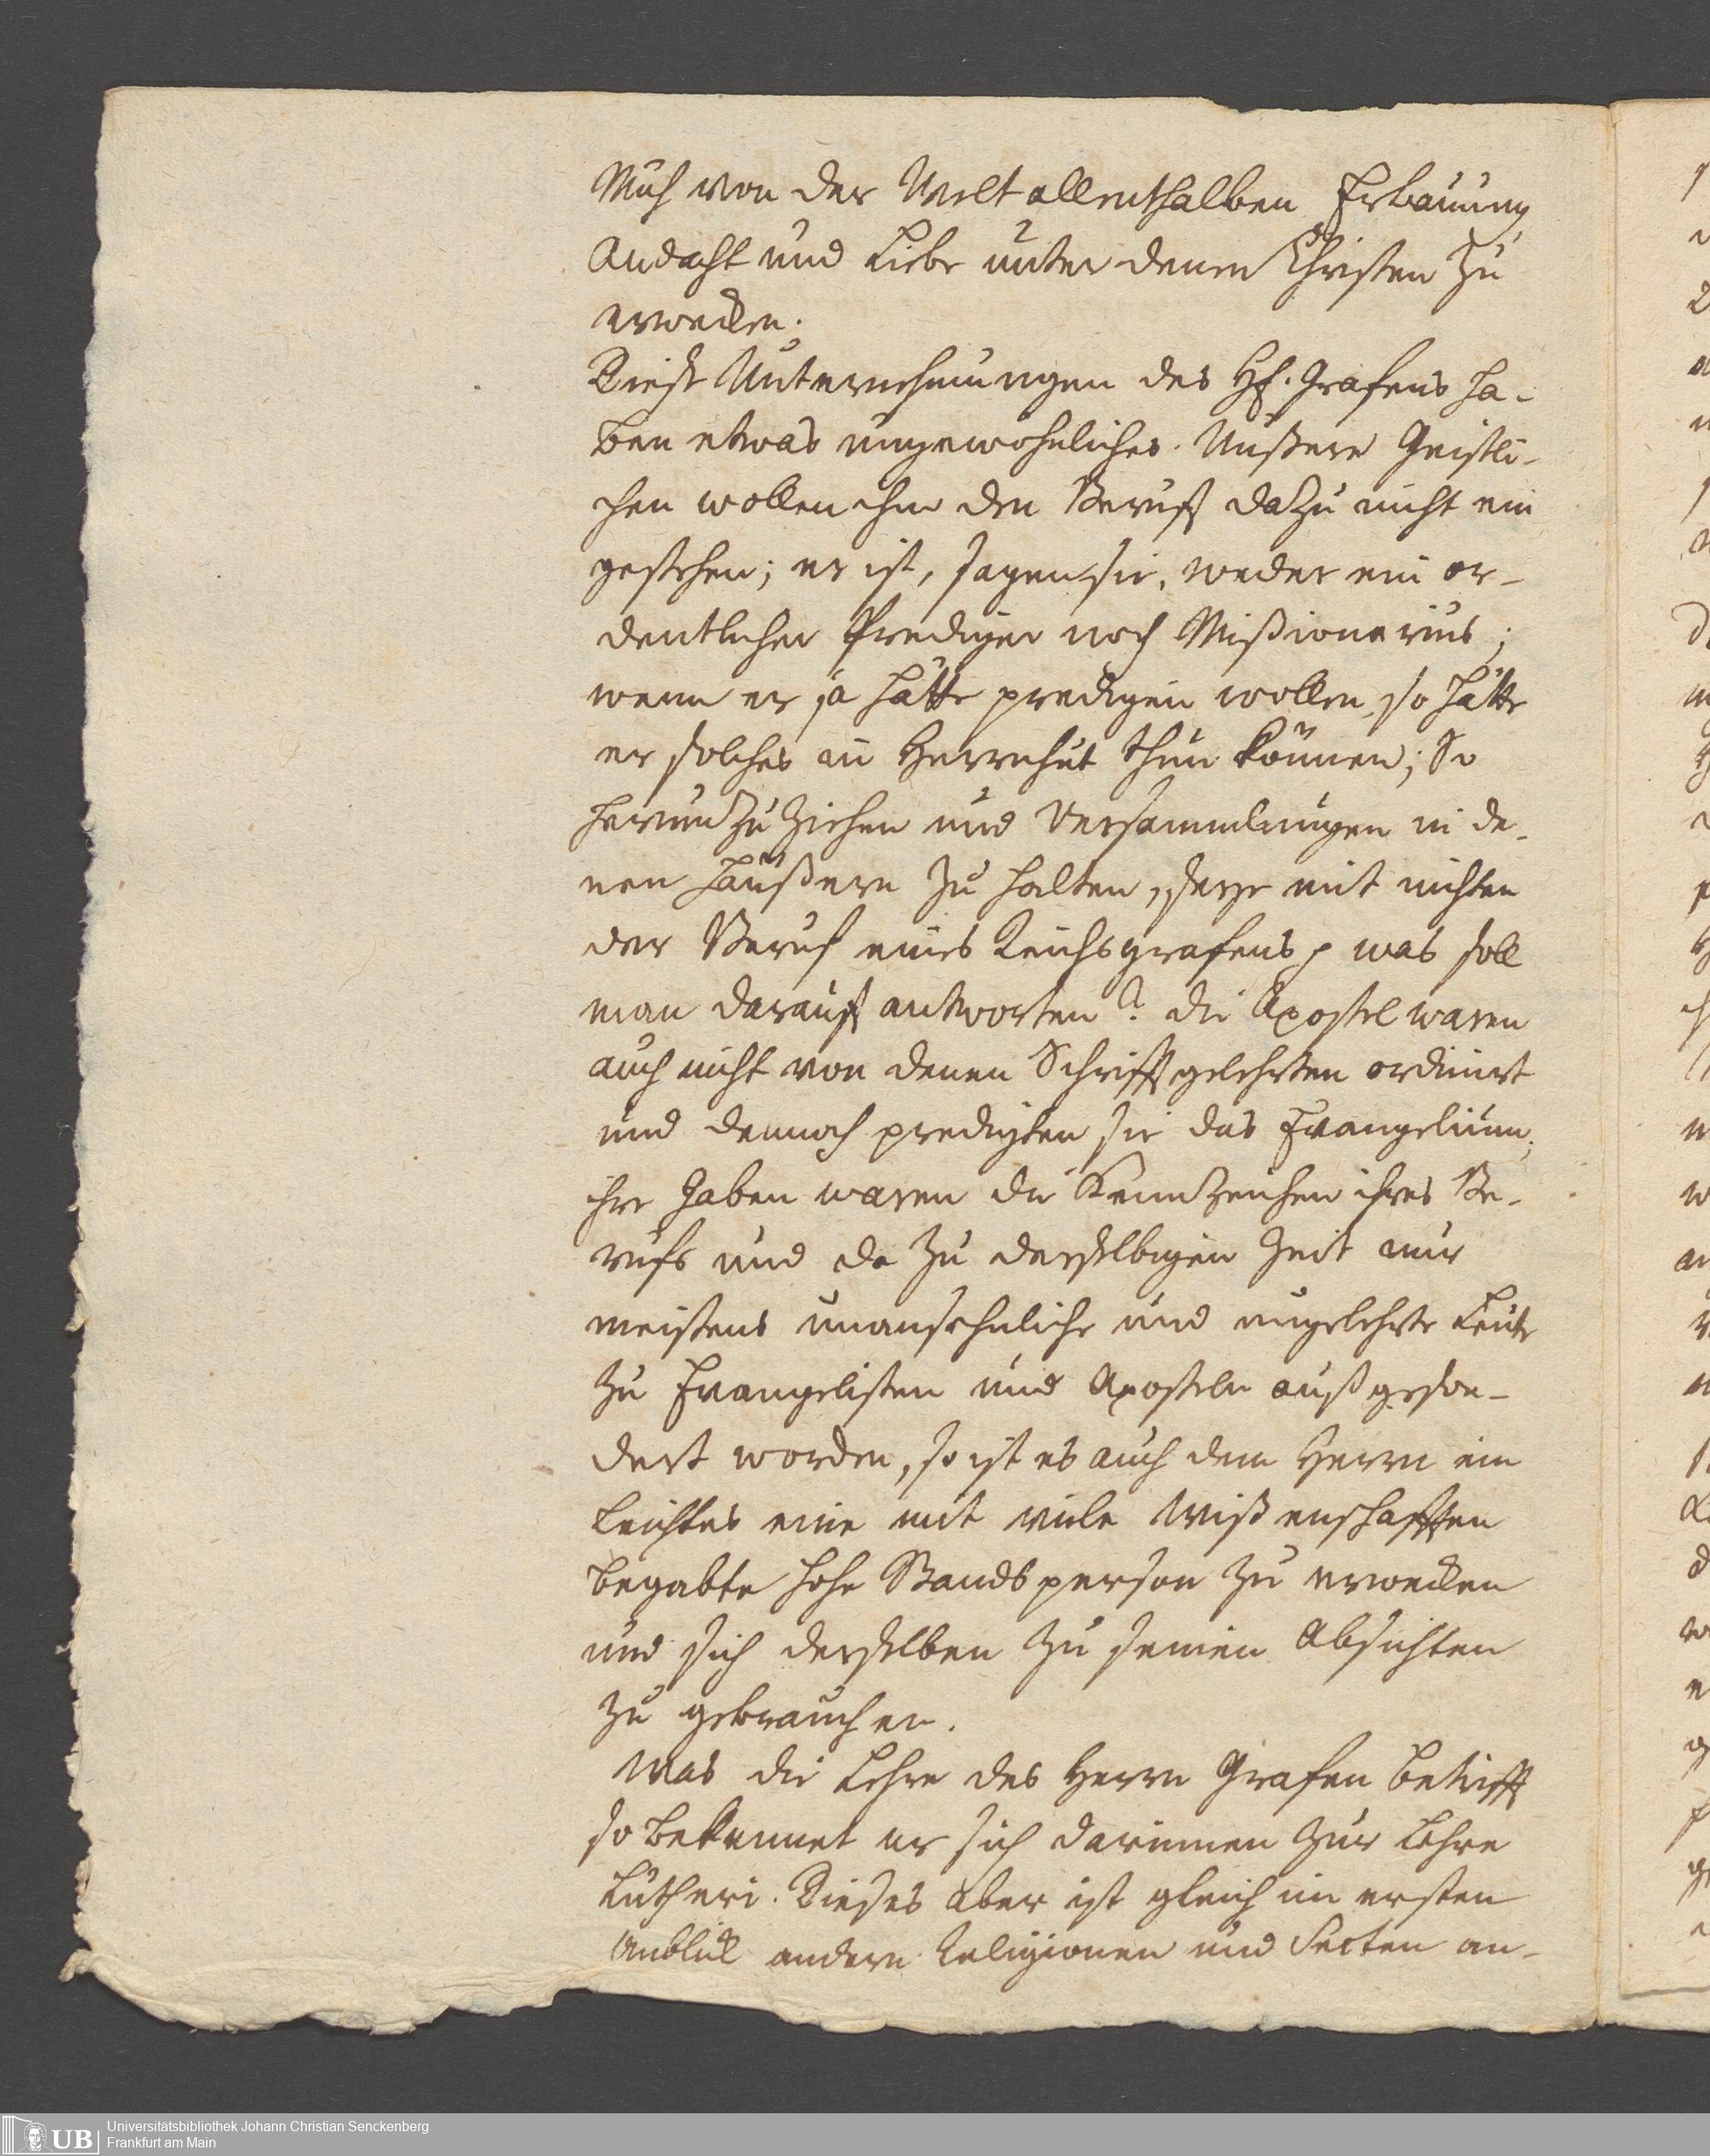 Müh von der Welt allenthalben Erbauung
Andacht und Liebe unter denen Christen zu
erwecken.
Diese Unternehmungen des H. Grafens ha-
ben etwas ungewöhnliches. Unßere Geistli-
chen wollen ihm den Beruff dazu nicht ein
gestehen; er ist, sagen sie, weder ein or-
dentlicher Prediger noch Mißionarius;
wenn er ja hätte predigen wollen, so hätte
er solches in Herrnhut thun können; So
herum zu ziehen und Versammlungen in de-
nen Häußern zu halten, seye mit nichten
der Beruf eines Reichsgrafens p was soll
man darauff antworten? die Apostel waren
auch nicht von denen Schrifftgelehrten ordinirt
und dennoch predigten sie das Evangelium;
ihre Gaben waren die Kennzeichen ihres Be-
rufs und da zu derselbigen Zeit nur
meistens unansehnliche und ungelehrte Leute
zu Evangelisten und Aposteln außgeson-
dert worden, so ist es auch dem Herrn ein
leichtes eine mit viele Wißenschafften
begabte hohe Standsperson zu erwecken
und sich derselben zu seinen Absichten
zu gebrauchen.
Was die Lehre des Herrn Grafen betrifft
so bekennet er sich darinnen zur Lehre
Lutheri. Dieses aber ist gleich im ersten
Anblick andern Religionen und Secten an-
UB Universitätsbibliothek Johann Christian Senckenberg
Frankfurt am Main